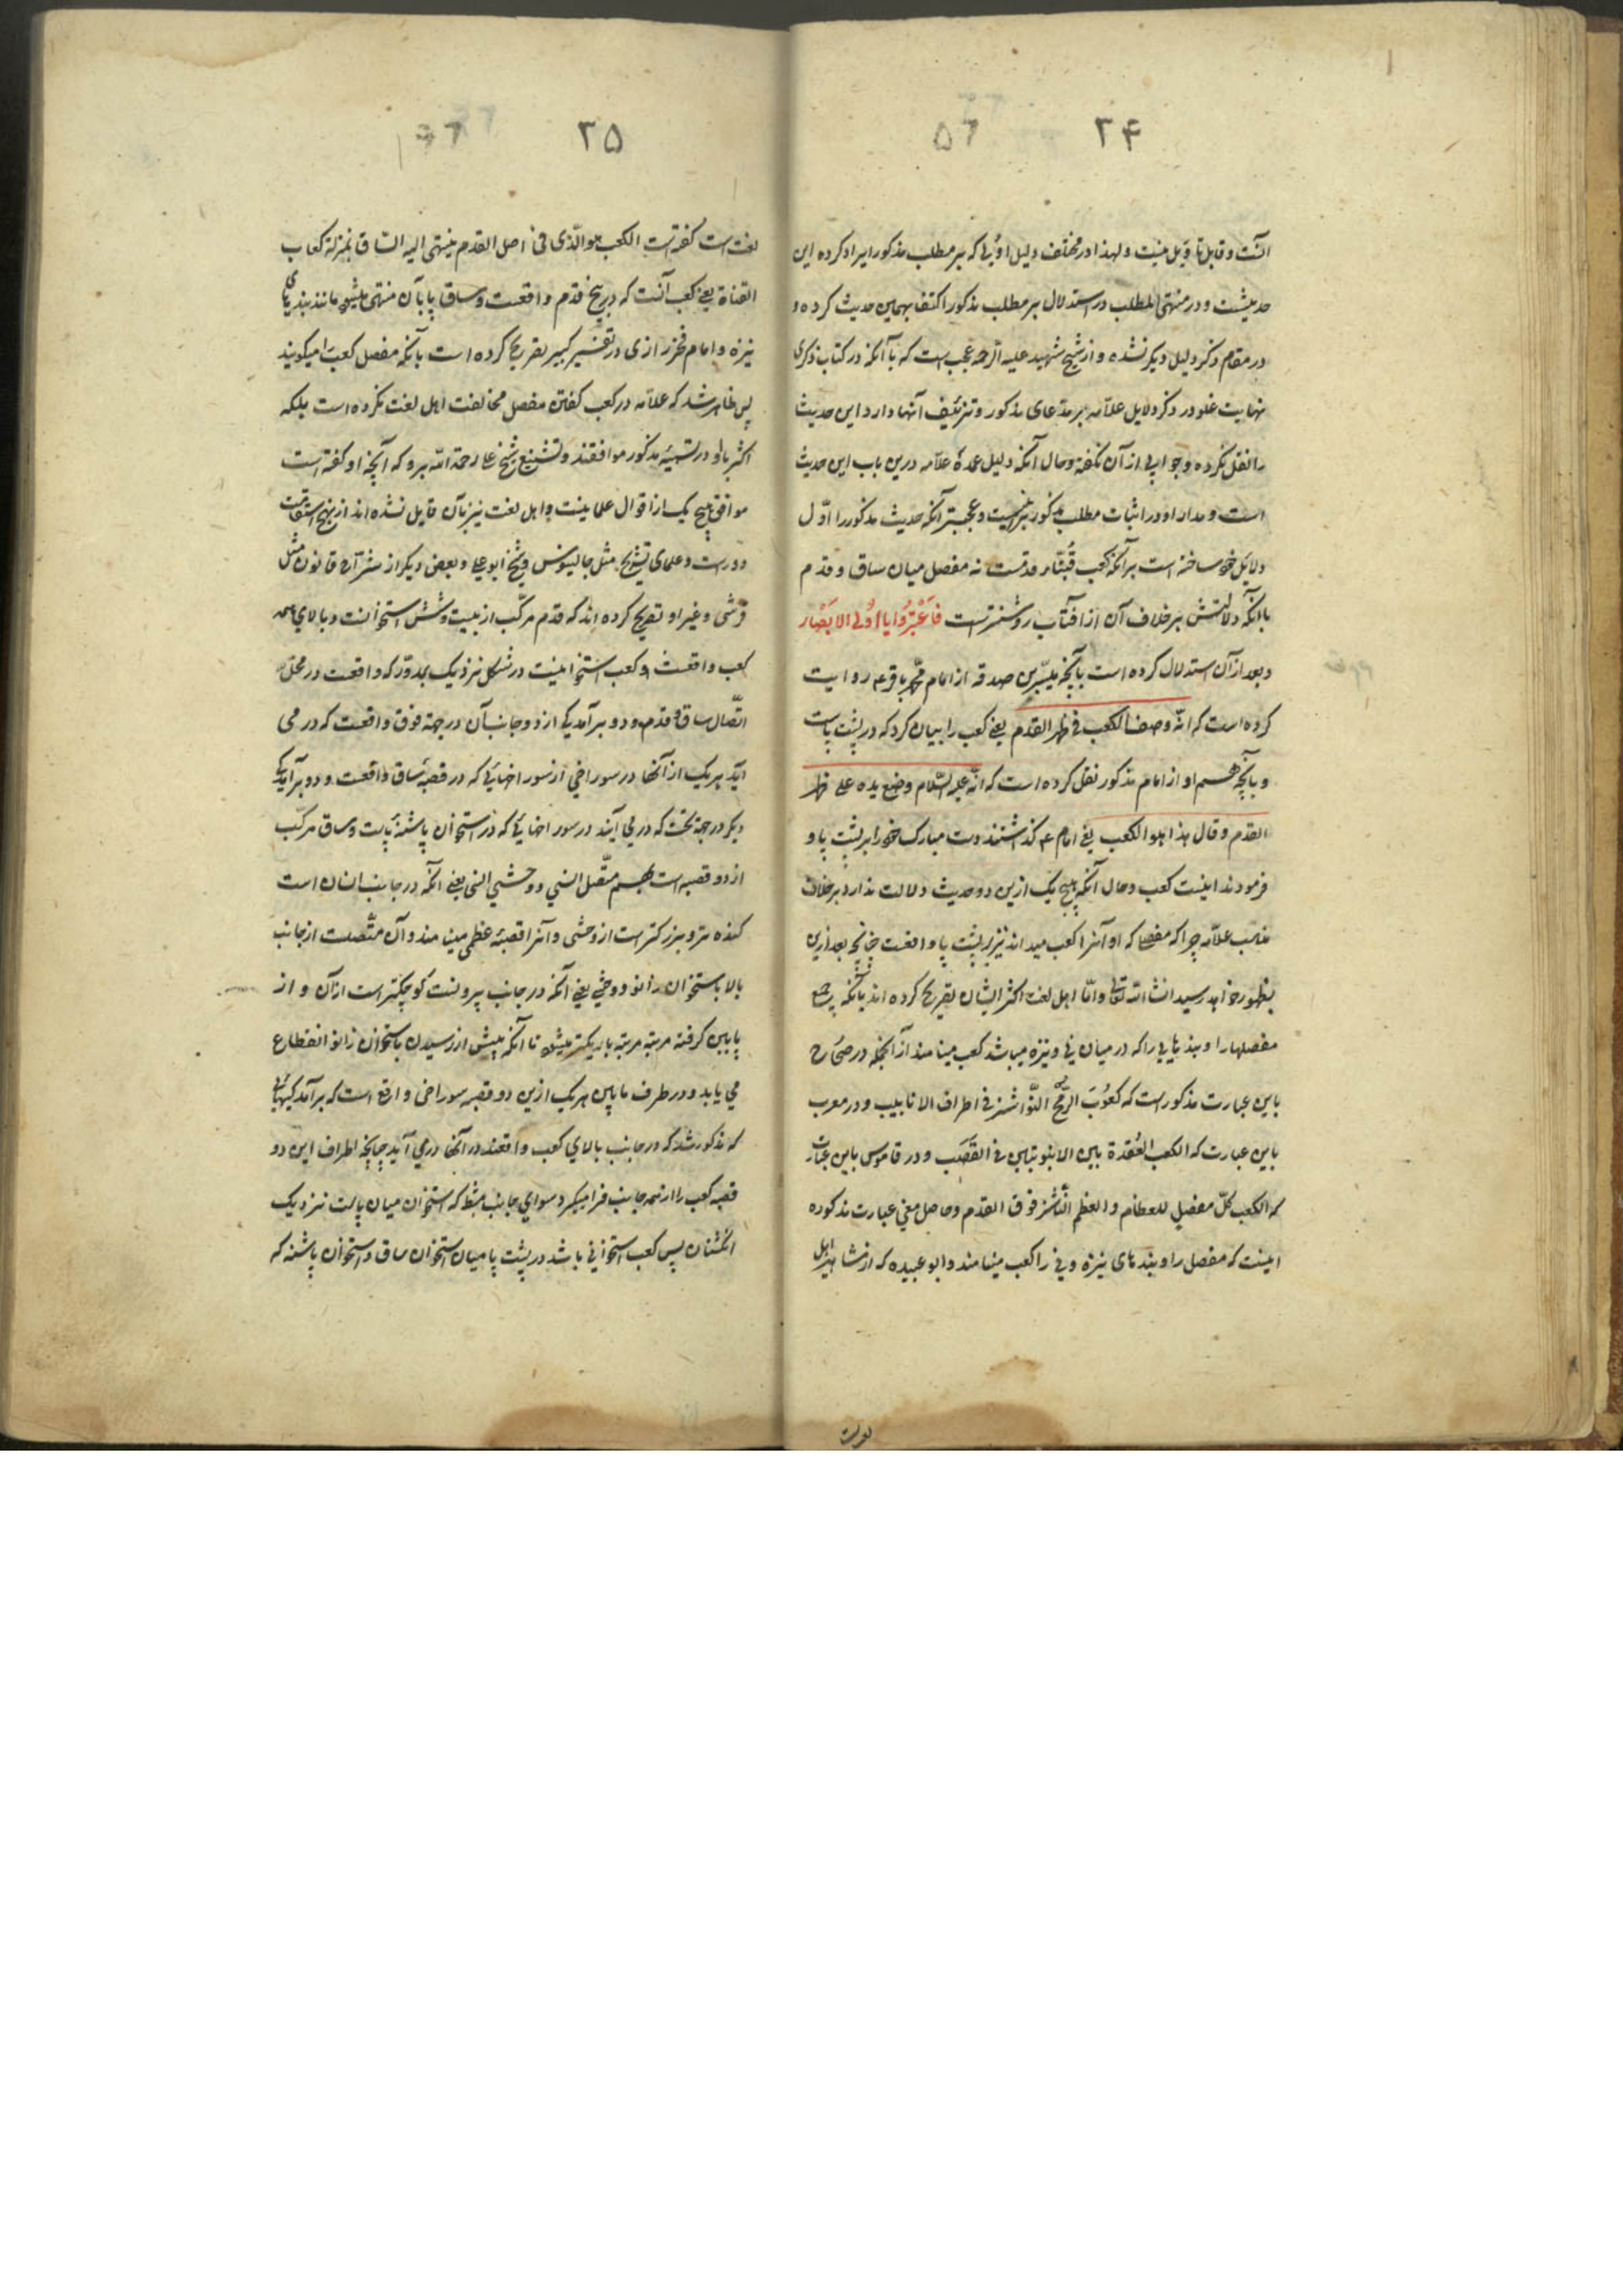 ۲۴
۵۶
آنست و قابل تأویل نیست و لهذا در مختلف دلیل اولی که بر مطلب مذکور ایراد کرده این
حدیثست و در منتهی المطلب در استدلال بر مطلب مذکور اکتفا بهمین حدیث کرده و
در مقام ذکر دلیل دیگر نشده و از شیخ شهید علیه الرحمه عجب است که با آنکه در کتاب ذکری
نهایت غلو در ذکر دلایل علامه بر مدعای مذکور و تزئیف آنها دارد این حدیث
را نقل نکرده و جوابی از آن نگفته و حال آنکه دلیل عمدهٔ علامه درین باب این حدیث
است و مدار او در اثبات مطلب مذکور برینست و عجبتر آنکه حدیث مذکور را اوّل
دلایل خود ساخته است بر آنکه کعب قبّهٔ قدمست نه مفصل میان ساق و قدم
با آنکه دلالتش بر خلاف آن از آفتاب روشنترست فَاعْتَبِرُوا یا اُولی الاَبْصار
و بعد از آن استدلال کرده است بآنچه میسّر بن صدقه از امام محمّد باقر ع روایت
کرده است که انّه وصف الکعب فی ظهر القدم یعنی کعب را بیان کرد که در پشت پاست
و بآنچه هم او از امام مذکور نقل کرده است که انّه علیه السّلام وضع یده علی ظهر
القدم و قال هذا هو الکعب یعنی امام ع گذاشتند دست مبارک خود را بر پشت پا و
فرمودند اینست کعب و حال آنکه هیچ یک ازین دو حدیث دلالت ندارد بر خلاف
مذهب علامه چرا که مفصلی که او آنرا کعب میداند نیز بر پشت پا واقعست چنانچه بعد ازین
بظهور خواهد رسید انشاء الله تعالی و امّا اهل لغت اکثر ایشان تصریح کرده اند بآنکه جمیع
مفصلها را و بندهایی را که در میان نی و نیزه میباشد کعب مینامند از آنجمله در صحاح
باین عبارت مذکور است که کُعُوبَ الرُّمحِ النَّواشز فی اطراف الانابیب و در مغرب
باین عبارت که الکعب العُقدة بین الانبوبتین فی القَصَب و در قاموس باین عبارت
که الکعب کلّ مفصلٍ للعظام و العظم النّاشز فوق القدم و حاصل معنی عبارت مذکوره
اینست که مفصل را و بندهای نیزه و نی را کعب مینامند و ابو عبیده که از مشاهیر اهل
لغت
۲۵
لغت است گفته است الکعب هو الّذی فی اصل القدم ینتهی الیه السّاق بمنزلة کعاب
القناة یعنی کعب آنست که در بیخ قدم واقعست و ساق پا بآن منتهی میشود مانند بندهای
نیزه و امام فخر رازی در تفسیر کبیر تصریح کرده است بآنکه مفصل کعب را میگویند
پس ظاهر شد که علامه در کعب گفتن مفصل مخالفت اهل لغت نکرده است بلکه
اکثر با او در تسمیهٔ مذکور موافقند و تشنیع شیخ علی رحمة الله برو که آنچه او گفته است
موافق هیچ یک از اقوال علما نیست و اهل لغت نیز بآن قایل نشده اند از نهج استقامت
دور است و علمای تشریح مثل جالینوس و شیخ ابو علی و بعضی دیگر از شرّاح قانون مثل
قرشی و غیر او تصریح کرده اند که قدم مرکّب از بیست و شش استخوانست و بالای همه
کعب واقعست و کعب استخوانیست در شکل نزدیک بمدوّر که واقعست در محلّ
اتّصال ساق و قدم و دو برآمدگی از دو جانب آن در جهة فوق واقعست که در می
آید هر یک از آنها در سوراخی از سوراخهائی که در قصبهٔ ساق واقعست و دو برآمدگی
دیگر در جهة تحت که در می آیند در سوراخهائی که در استخوان پاشنهٔ پاست و ساق مرکّب
از دو قصبه است بهم متّصل انسی و وحشی انسی یعنی آنکه در جانب انسان است
کنده تر و بزرگتر است از وحشی و آنرا قصبهٔ عظمی مینامند و آن متّصلست از جانب
بالا باستخوان رانو و وحشی یعنی آنکه در جانب بیرونست کوچکتر است از آن و از
پایین گرفته مرتبه مرتبه باریکتر میشود تا آنکه پیش از رسیدن باستخوان زانو انقطاع
می یابد و در طرف پایین هر یک ازین دو قصبه سوراخی واقع است که برآمدگیهائی
که مذکور شد که در جانب بالای کعب واقعند در آنها در می آید چنانچه اطراف این دو
قصبه کعب را از همه جانب فرا میگیرد سوای جانب مشط که استخوان میان پاست نزدیک
انگشتان پس کعب استخوانی باشد در پشت پا میان استخوان ساق و استخوان پاشنه که